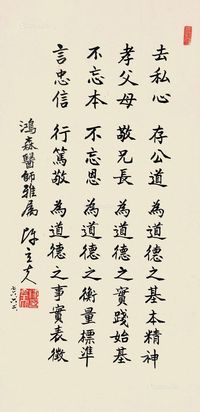 去私心　存公道　為道德之基本精神
孝父母　敬兄長　為道德之實踐始基
不忘本　不忘恩　為道德之衡量標準
言忠信　行篤敬　為道德之事實表徵
鴻森醫師雅屬　陳立夫